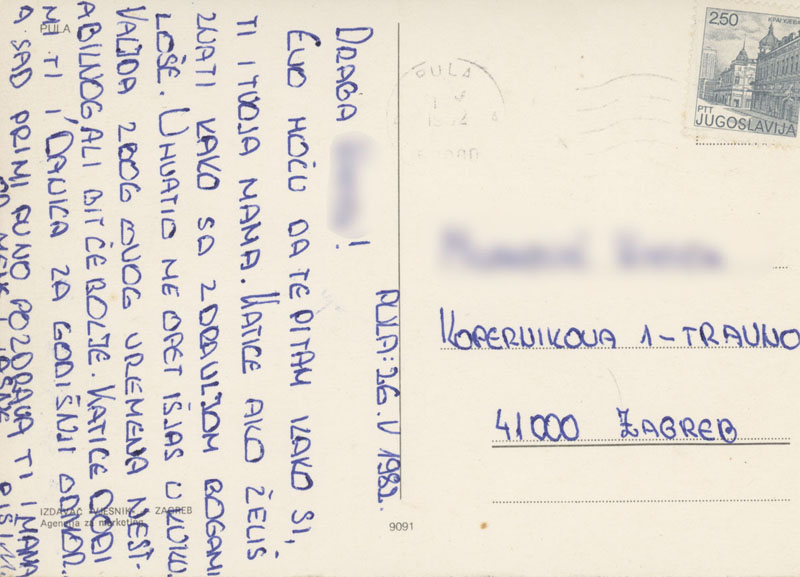 PULA
DRAGA !
EVO HOĆU DA TE PITAM KAKO SI,
TI I TVOJA MAMA. KATICE AKO ŽELIŠ
ZNATI KAKO SA ZDRAVLJOM BOGAMI
LOŠE. UHVATIO ME OPET IŠJAS U KUKU.
VALJDA ZBOG OVOG VREMENA NEST-
ABILNOG, ALI BIT ĆE BOLJE. KATICE DOĐI
MI TI I DANICA ZA GODIŠNJI ODMOR.
A SAD PRIMI PUNO POZDRAVA TI I MAMA
OD
PULA: 26. V 1982.
IZDAVAČ VJESNIK - ZAGREB
Agencija za marketing
9091
PULA
250
PTT
JUGOSLAVIJA
KOPERNIKOVA 1-TRAVNO
41000 ZAGREB